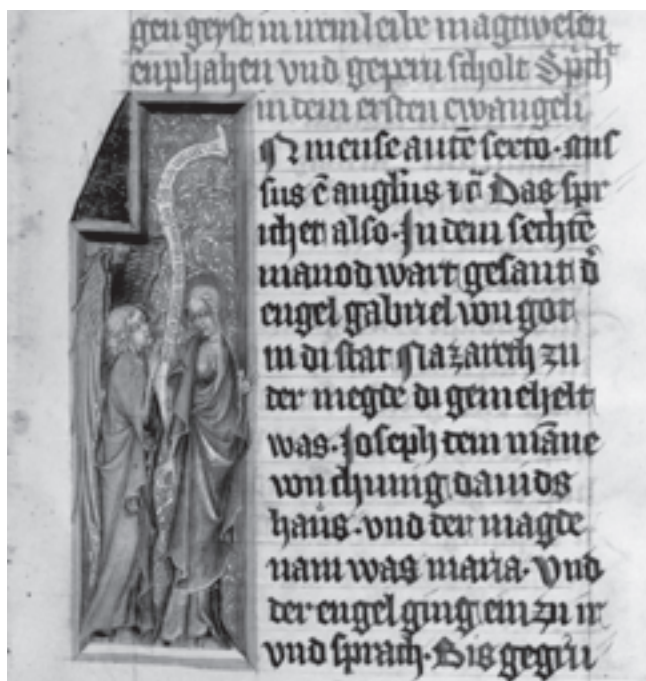 gen geyst in irem leibe magtwesen
enphahen vnd gepern scholt Sp͛ich͛t
in dem ersten ewangeli
In mense autē sexto · mis
sus ē angl̄us ⁊c̄ Das spr
ichet also · In dem sechtē
manod wart gesant d͛
engel gabriel von got
in di stat Nazareth zu
der megde di gemehelt
was · Joseph dem māne
von chunig dauids
haus · vnd der magde
nam was maria · vnd
der engel ging ein zu ir
vnd sprach · Bis gegru